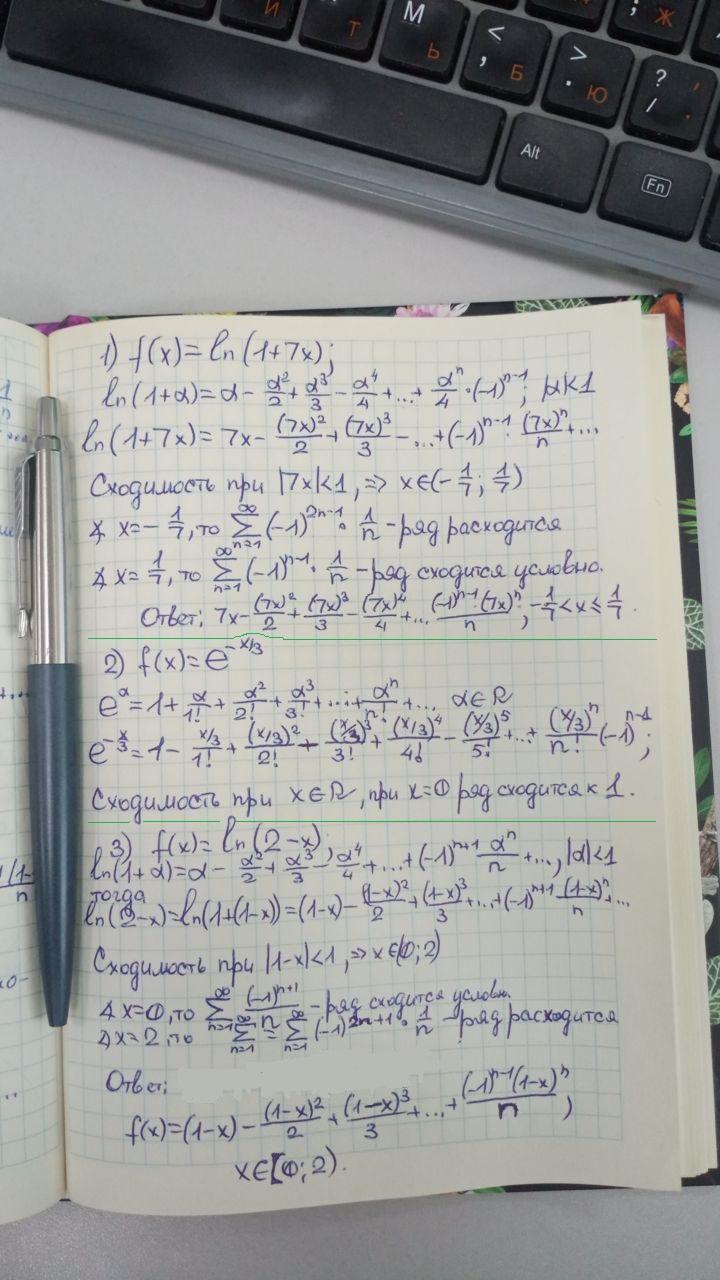 И
Т
М
Ь
<
,
Б
>
.
Ю
;
Ж
?
/
.
Alt
Fn
1) f(x)=ln(1+7x);
ln(1+α)=α-α²/2+α³/3-α⁴/4+...+αⁿ/4·(-1)ⁿ⁻¹; |α|<1
ln(1+7x)=7x-(7x)²/2+(7x)³/3-...+(-1)ⁿ⁻¹·(7x)ⁿ/n+...
Сходимость при |7x|<1, => x∈(-1/7; 1/7)
∢ x=-1/7, то ∑_{n=1}^{∞}(-1)²ⁿ⁻¹·1/n - ряд расходится
∢ x=1/7, то ∑_{n=1}^{∞}(-1)ⁿ⁻¹·1/n - ряд сходится условно.
Ответ: 7x-(7x)²/2+(7x)³/3-(7x)⁴/4+...(-1)ⁿ⁻¹·(7x)ⁿ/n, -1/7<x≤1/7.
2) f(x)=e^{-x/3}
e^α=1+α/1!+α²/2!+α³/3!+...+αⁿ/n!+... α∈ℝ
e^{-x/3}=1-(x/3)/1!+(x/3)²/2!-(x/3)³/3!+(x/3)⁴/4!-(x/3)⁵/5!+...+(x/3)ⁿ/n!(-1)ⁿ⁻¹;
Сходимость при x∈ℝ, при x=0 ряд сходится к 1.
3) f(x)=ln(2-x);
ln(1+α)=α-α²/2+α³/3-α⁴/4+...+(-1)ⁿ⁺¹αⁿ/n+..., |α|<1
тогда
ln(2-x)=ln(1+(1-x))=(1-x)-(1-x)²/2+(1-x)³/3+...+(-1)ⁿ⁺¹(1-x)ⁿ/n+...
Сходимость при |1-x|<1, => x∈(0;2)
∢ x=0, то ∑_{n=1}^{∞}(-1)ⁿ⁺¹/n - ряд сходится условн.
∢ x=2, то ∑_{n=1}^{∞}=∑_{n=1}^{∞}(-1)²ⁿ⁺¹·1/n - ряд расходится
Ответ:
f(x)=(1-x)-(1-x)²/2+(1-x)³/3+...+(-1)ⁿ⁻¹(1-x)ⁿ/n,
x∈[0;2).